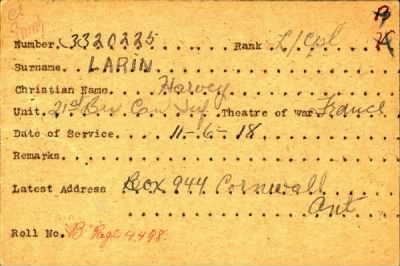 B
Number 3320225 Rank L/Cpl
Surname LARIN
Christian Name Harvey
Unit 21st Bn Can Inf Theatre of war France
Date of Service 11-6-18
Remarks
Latest Address Box 944 Cornwall
Ont
Roll No. "B" Page 4498.